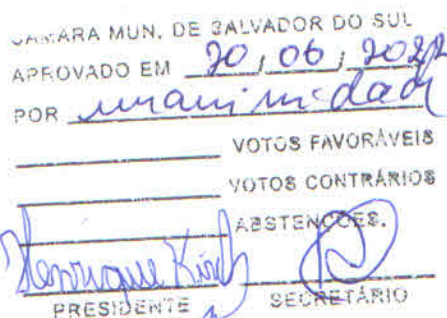 CÂMARA MUN. DE SALVADOR DO SUL
APROVADO EM 20, 06, 2022
POR unanimidade
VOTOS FAVORÁVEIS
VOTOS CONTRÁRIOS
ABSTENÇÕES.
Henrique Kirch
PRESIDENTE SECRETÁRIO